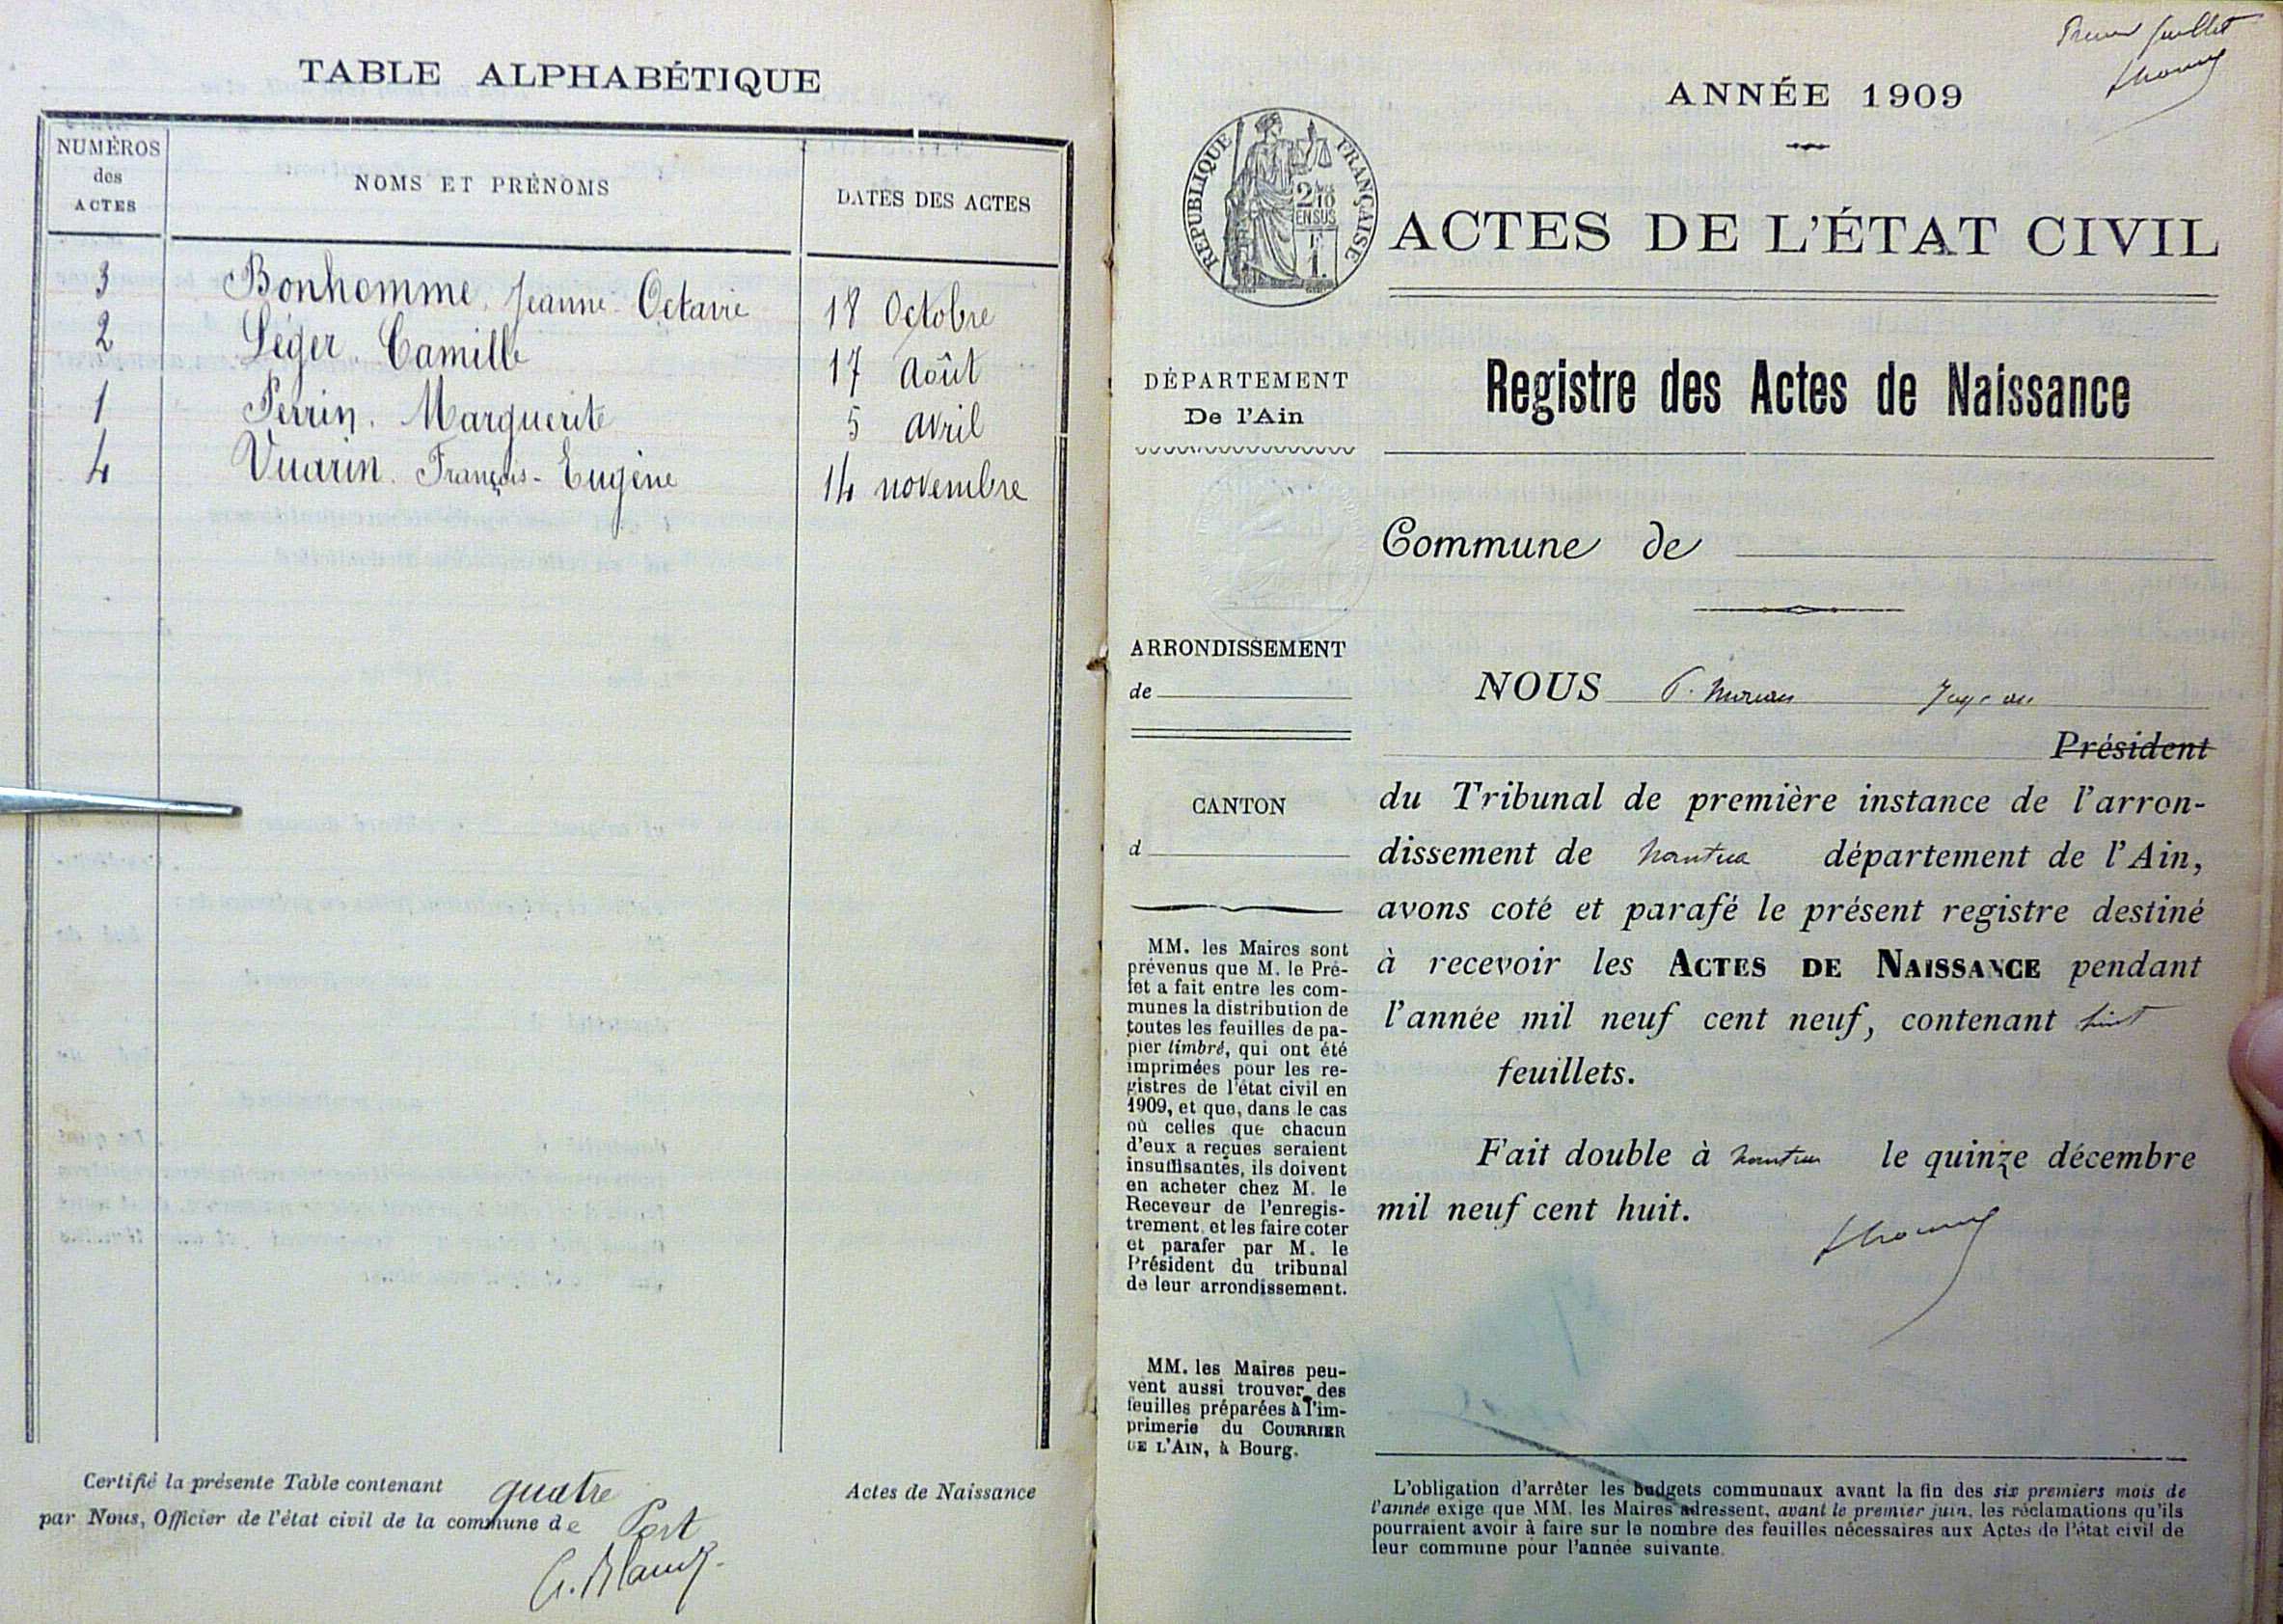 TABLE ALPHABÉTIQUE
NUMÉROS des ACTES
NOMS ET PRÉNOMS
DATES DES ACTES
3 Bonhomme. Jeanne Octavie 18 Octobre
2 Léger. Camille 17 Août
1 Perrin. Marguerite 5 avril
4 Vuarin. François-Eugène 14 novembre
Certifié la présente Table contenant quatre Actes de Naissance
par Nous, Officier de l'état civil de la commune de Port
Premier feuillet
ANNÉE 1909
RÉPUBLIQUE FRANÇAISE
2/10
EN SUS
ACTES DE L'ÉTAT CIVIL
DÉPARTEMENT
De l'Ain
Registre des Actes de Naissance
Commune de
ARRONDISSEMENT
de
CANTON
d
MM. les Maires sont
prévenus que M. le Pré-
fet a fait entre les com-
munes la distribution de
toutes les feuilles de pa-
pier timbré, qui ont été
imprimées pour les re-
gistres de l'état civil en
1909, et que, dans le cas
où celles que chacun
d'eux a reçues seraient
insuffisantes, ils doivent
en acheter chez M. le
Receveur de l'enregis-
trement, et les faire coter
et parafer par M. le
Président du tribunal
de leur arrondissement.
MM. les Maires peu-
vent aussi trouver des
feuilles préparées à l'im-
primerie du COURRIER
DE L'AIN, à Bourg.
NOUS
Président
du Tribunal de première instance de l'arron-
dissement de Nantua département de l'Ain,
avons coté et parafé le présent registre destiné
à recevoir les ACTES DE NAISSANCE pendant
l'année mil neuf cent neuf, contenant huit
feuillets.
Fait double à Nantua le quinze décembre
mil neuf cent huit.
L'obligation d'arrêter les budgets communaux avant la fin des six premiers mois de
l'année exige que MM. les Maires adressent, avant le premier juin, les réclamations qu'ils
pourraient avoir à faire sur le nombre des feuilles nécessaires aux Actes de l'état civil de
leur commune pour l'année suivante.